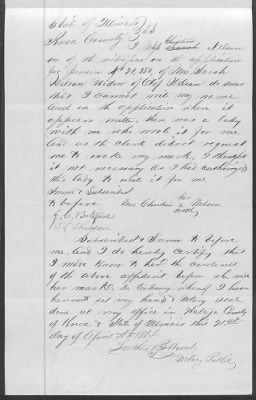 State of Illinois
Knox County
I Mrs Christine Nelson
one of the witnesses on the application
for pension No 21,350, of Mrs Sarah
Nelson Widow of Olof Nelson do swear
that I cannot write my name
and on the application where it
appears written, there was a lady
with me who wrote it for me
and as the clerk did not request
me to make my mark, I thought
it not necessary as I had authorized
this lady to write it for me
Sworn & Subscribed
to before Mrs Christine her x mark Nelson
Subscribed & Sworn to before
me. And I do hereby certify that
I made known to her the contents
of the above affidavit before she made
her mark. In testimony whereof I have
hereunto set my hand & Notary seal
done at my office in County
of Knox & State of Illinois this 21st
day of April
Notary Public